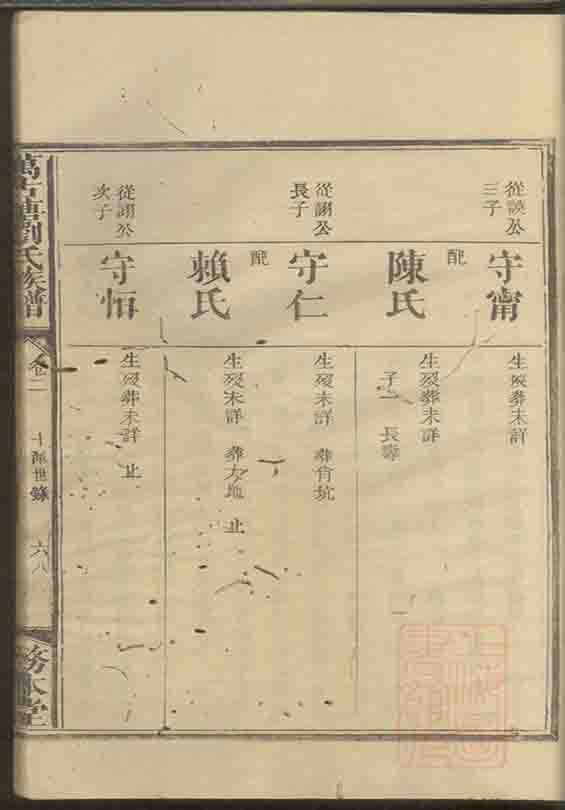 從謨公
三子
守甯
生歿葬未詳
配
陳氏
生歿葬未詳
子一 長壽
從謝公
長子
守仁
生歿未詳 葬肖坑
配
賴氏
生歿未詳 葬大地 止
從謝公
次子
守恒
生歿葬未詳 止
萬古塘劉氏族譜
卷二
世錄
六八
務本堂